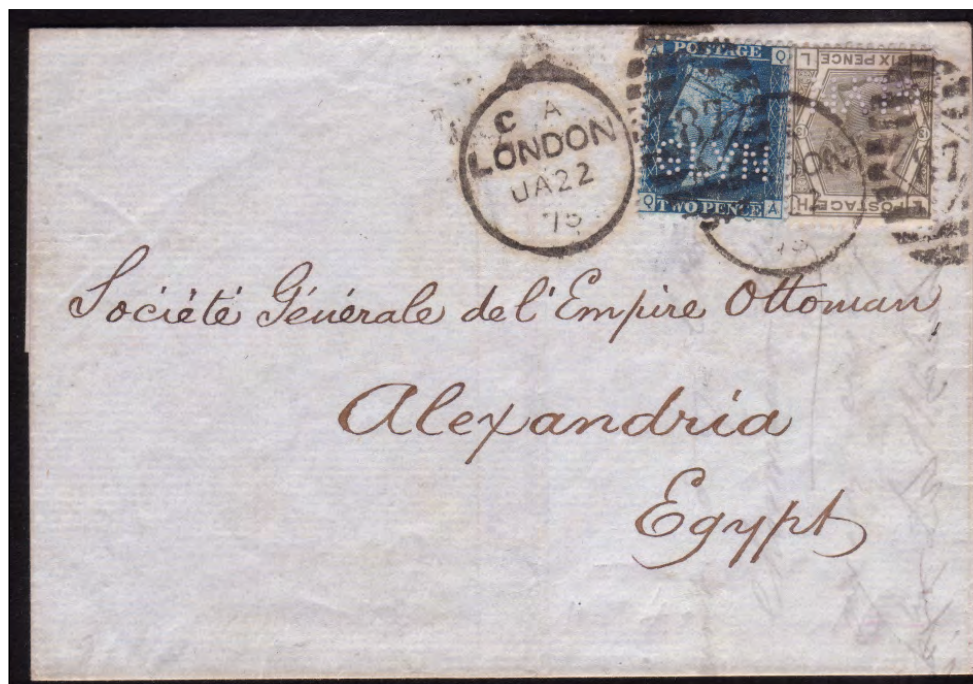 C A
LONDON
JA 22
75
A POSTAGE Q
87
Q TWO PENCE A
SIX PENCE L
POSTAGE H
75
Société Générale de l'Empire Ottoman,
Alexandria
Egypt